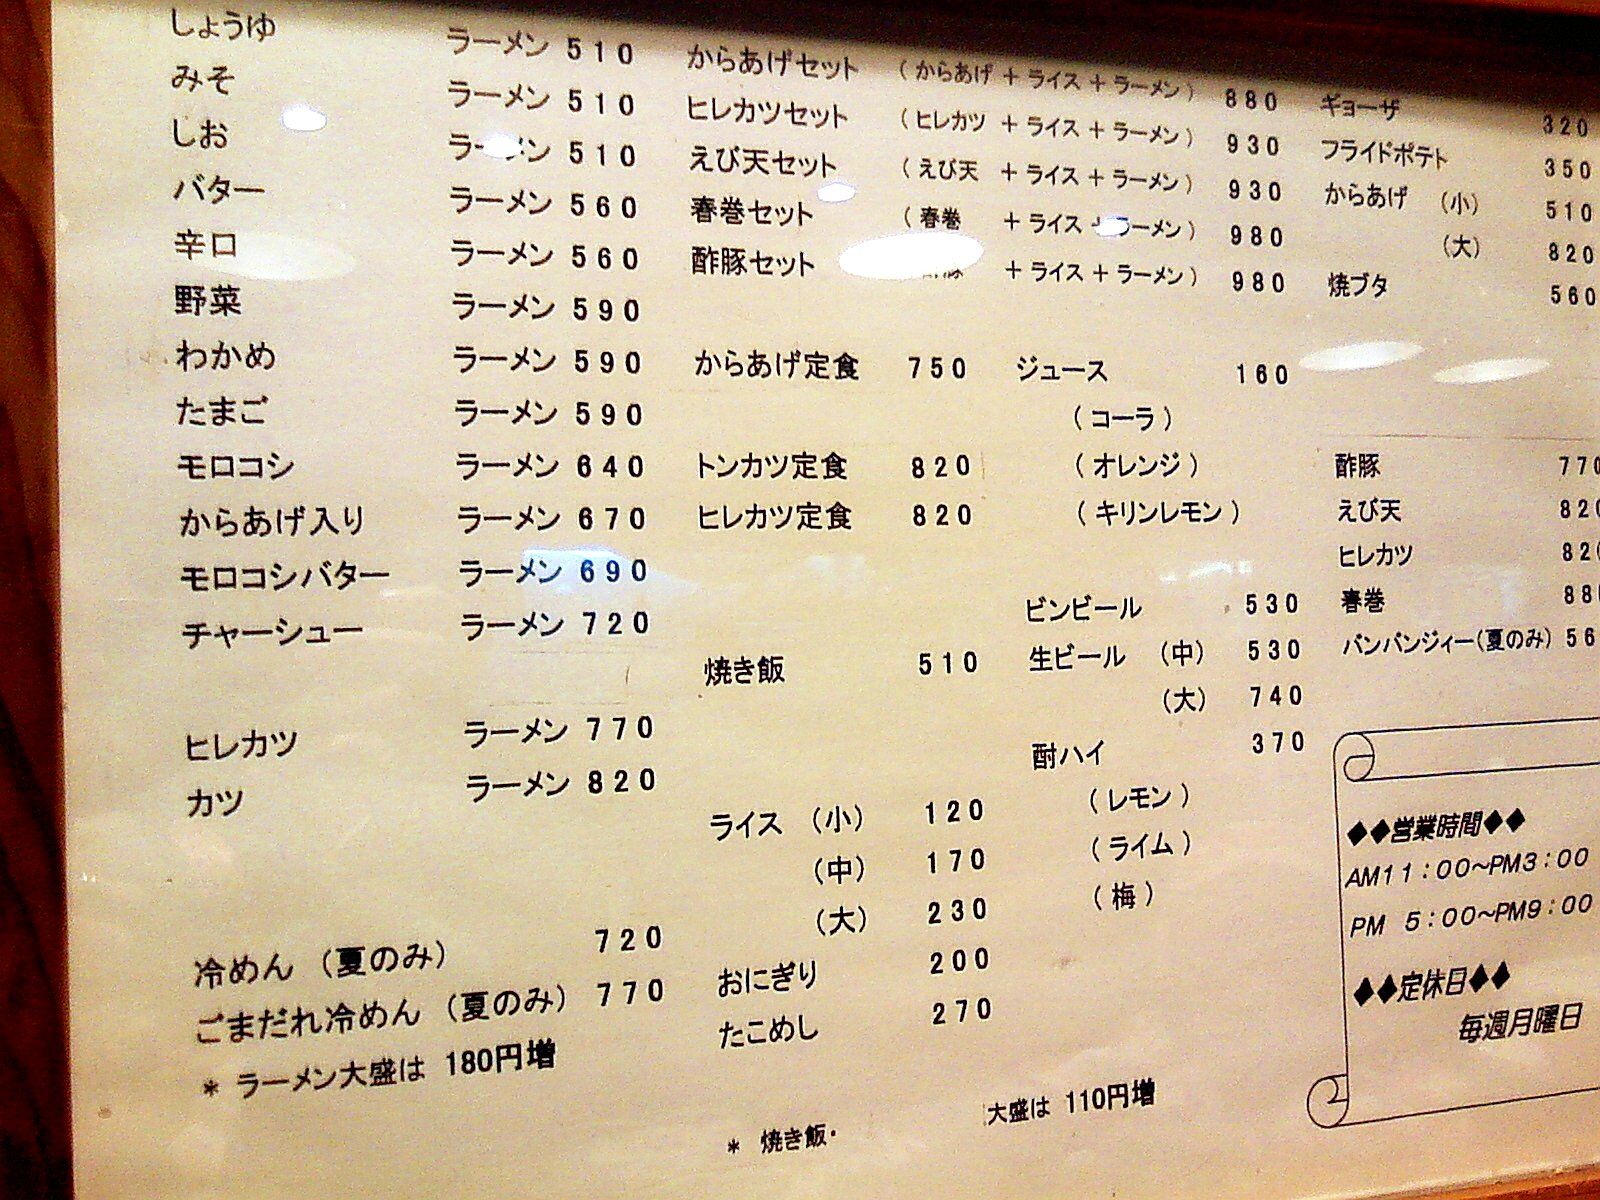 しょうゆ ラーメン 510
みそ ラーメン 510
しお ラーメン 510
バター ラーメン 560
辛口 ラーメン 560
野菜 ラーメン 590
わかめ ラーメン 590
たまご ラーメン 590
モロコシ ラーメン 640
からあげ入り ラーメン 670
モロコシバター ラーメン 690
チャーシュー ラーメン 720
ヒレカツ ラーメン 770
カツ ラーメン 820
冷めん (夏のみ) 720
ごまだれ冷めん (夏のみ) 770
* ラーメン大盛は 180円増
からあげセット (からあげ + ライス + ラーメン) 880
ヒレカツセット (ヒレカツ + ライス + ラーメン) 930
えび天セット (えび天 + ライス + ラーメン) 930
春巻セット (春巻 + ライス + ラーメン) 980
酢豚セット 酢豚 + ライス + ラーメン) 980
からあげ定食 750
トンカツ定食 820
ヒレカツ定食 820
焼き飯 510
ライス (小) 120
(中) 170
(大) 230
おにぎり 200
たこめし 270
* 焼き飯・ 大盛は 110円増
ジュース 160
(コーラ)
(オレンジ)
(キリンレモン)
ビンビール 530
生ビール (中) 530
(大) 740
酎ハイ 370
(レモン)
(ライム)
(梅)
ギョーザ 320
フライドポテト 350
からあげ (小) 510
(大) 820
焼ブタ 560
酢豚 770
えび天 820
ヒレカツ 820
春巻 880
バンバンジィー(夏のみ) 56
◆◆営業時間◆◆
AM11:00~PM3:00
PM 5:00~PM9:00
◆◆定休日◆◆
毎週月曜日